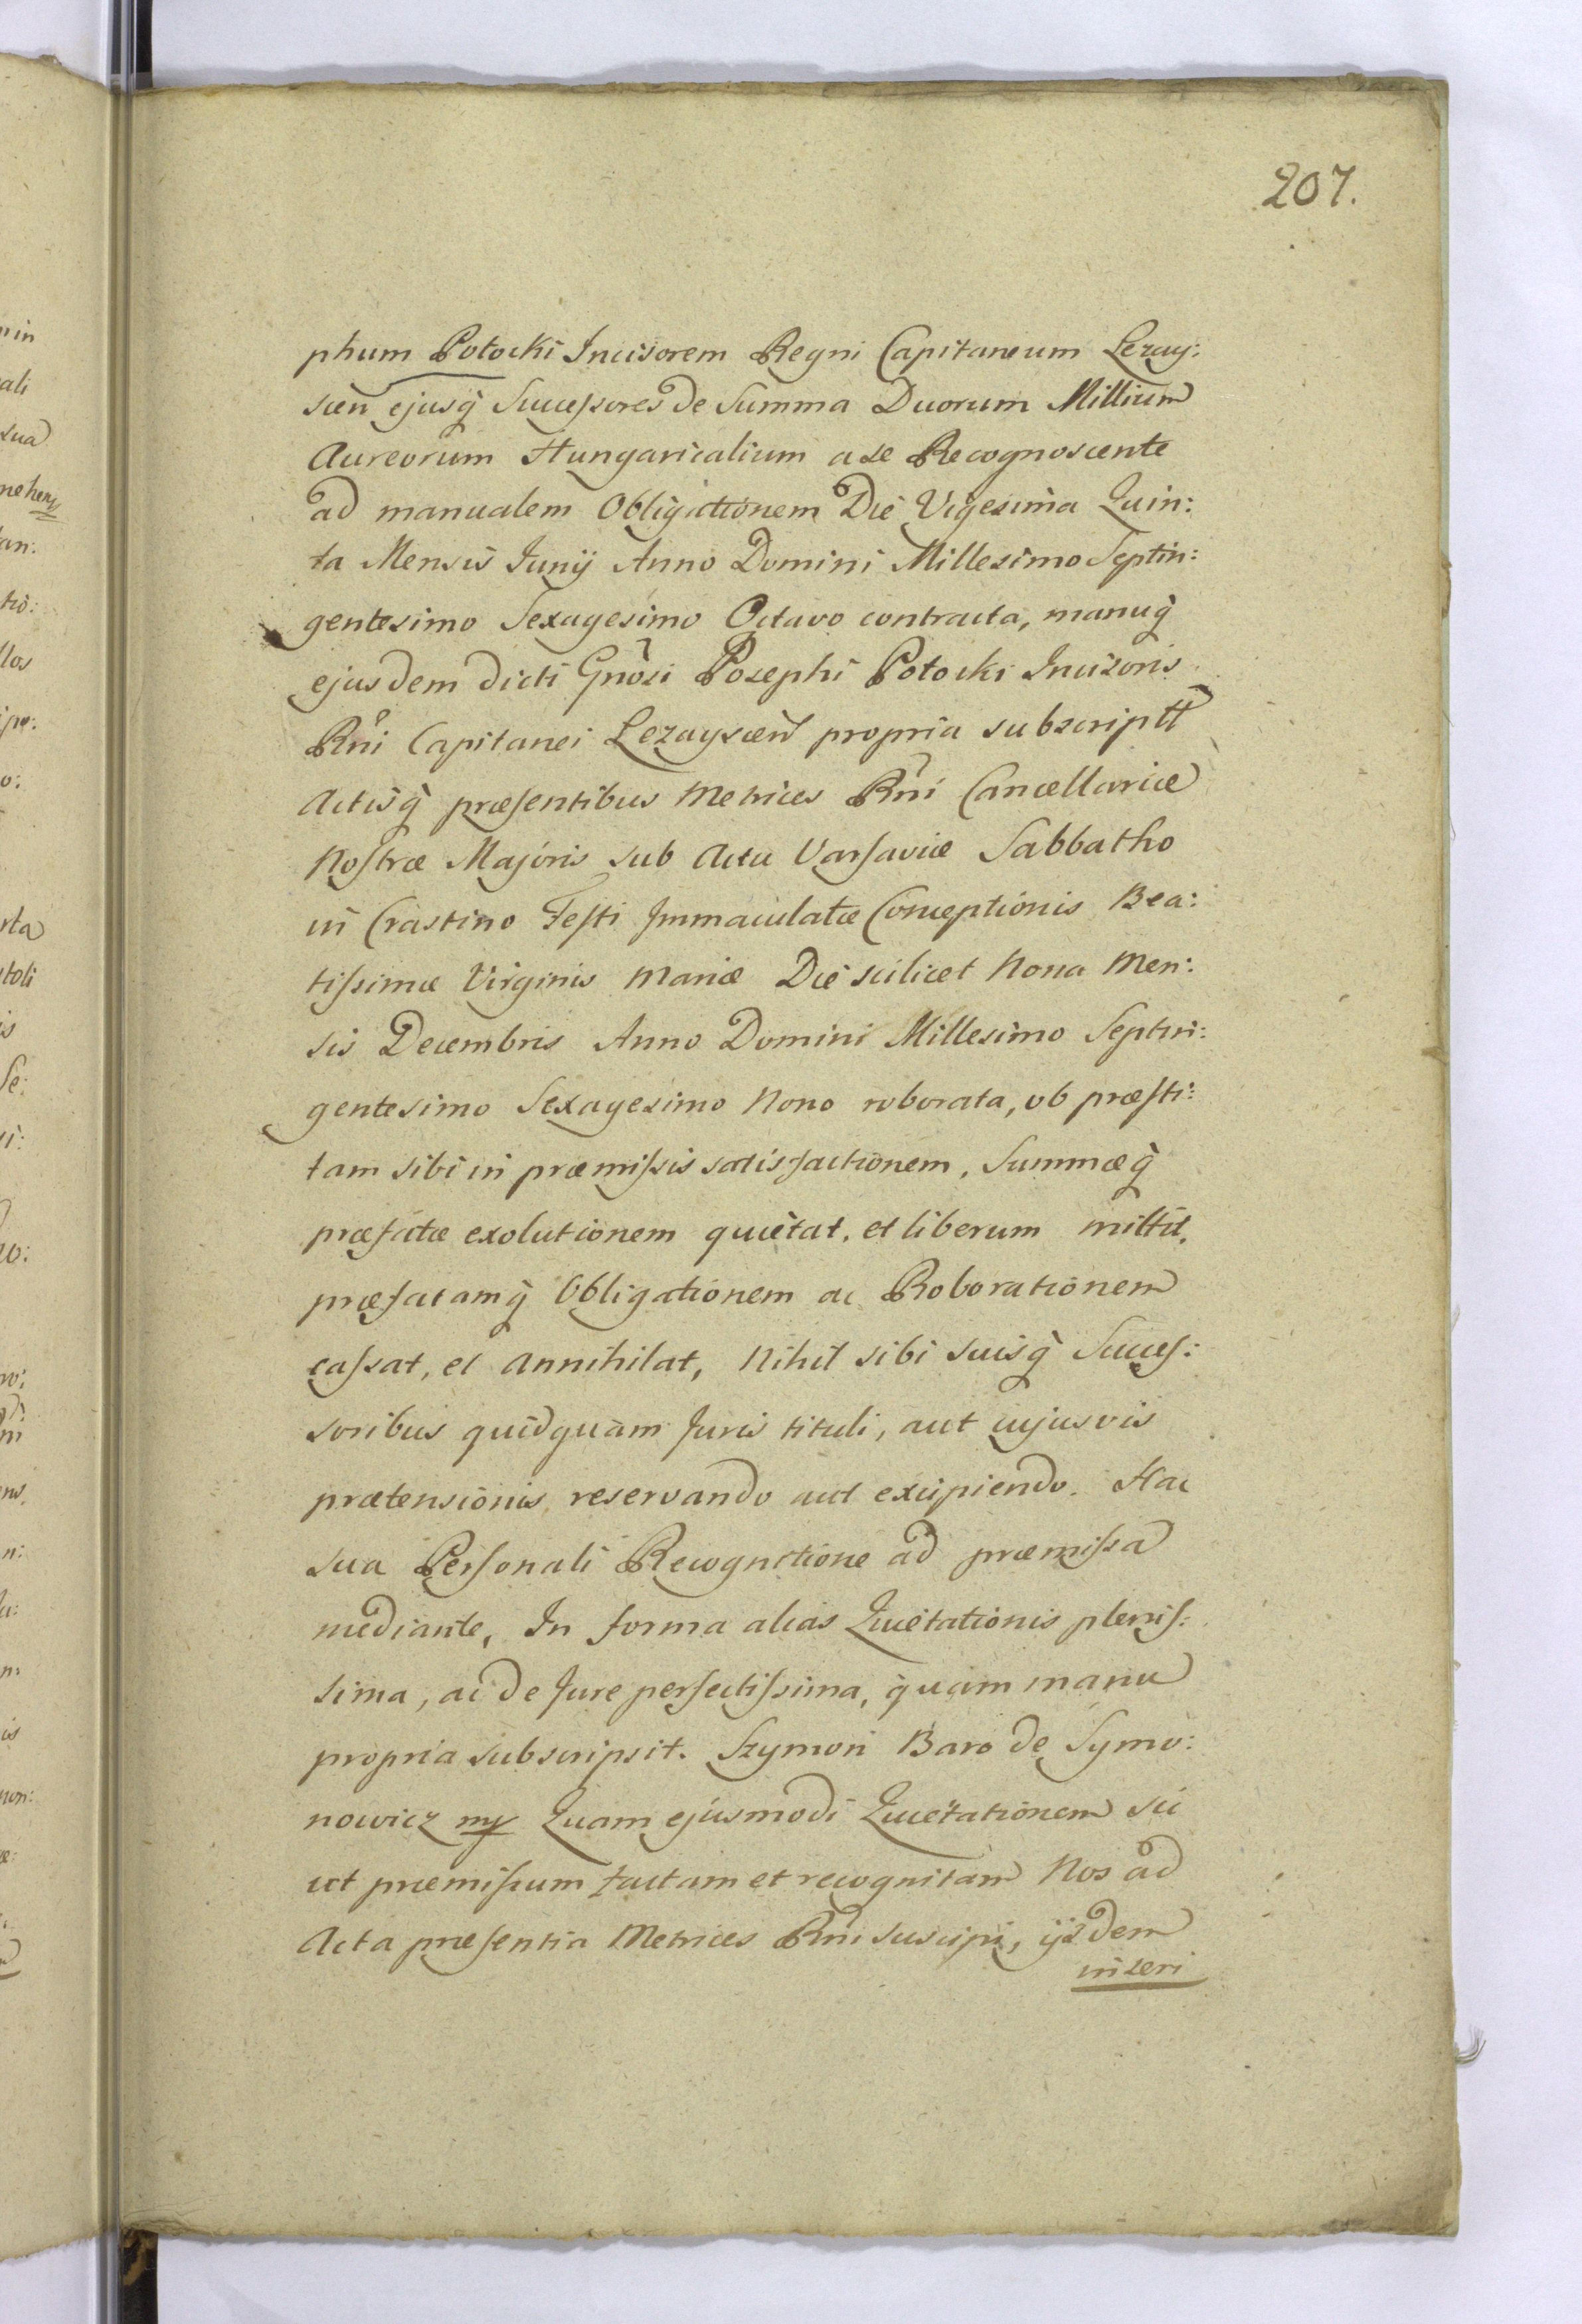 207.
phum Potocki Incisorem Regni Capitaneum Lezay:
scen ejusq̀ Successores de Summa Duorum Millium
Aureorum Hungaricalium a se Recognoscente
ad manualem Obligationem Die Vigesima Quin:
ta Mensis Junij Anno Domini Millesimo Septin:
gentesimo Sexagesimo Octavo contracta, manuq̀
ejusdem dicti Gnosi Josephi Potocki Incisoris
Rni Capitanei Lezayscen propria subscript
Actisq̀ præsentibus Metrices Rni Cancellariæ
Nostræ Majoris sub Actu Varsaviæ Sabbatho
in Crastino Festi Immaculatæ Conceptionis Bea:
tissimæ Virginis Mariæ Die scilicet Nona Men:
sis Decembris Anno Domini Millesimo Septin:
gentesimo Sexagesimo Nono roborata, ob præsti:
tam sibi in præmissis satisfactionem, Summæq̀
præfatæ exolutionem quietat, et liberum mittit,
præfatamq̀ Obligationem ac Roborationem
cassat, et annihilat, Nihil sibi suisq̀ Succes:
soribus quidquam Juris tituli, aut cujusvis
prætensionis reservando aut excipiendo. Hac
sua Personali Recognitione ad præmissa
mediante, In forma alias Quietationis plenis:
sima, ac de Jure perfectissima, quam manu
propria subscripsit. Szymon Baro de Symo:
nowicz mp Quam ejusmodi Quietationem sic
ut præmissum factam et recognitam Nos ad
Acta præsentia Metrices Rni suscipi, ijsdem
inseri